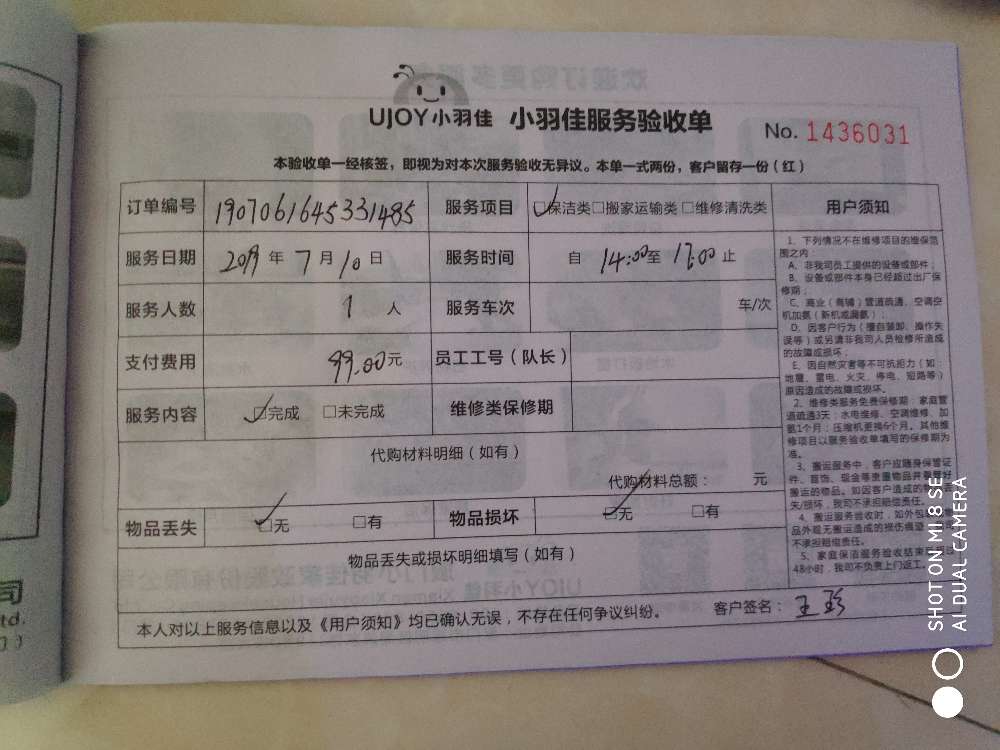 UJOY小羽佳 小羽佳服务验收单 No. 1436031
本验收单一经核签，即视为对本次服务验收无异议。本单一式两份，客户留存一份（红）
订单编号 190706164533​1485 服务项目 ☑保洁类□搬家运输类□维修清洗类 用户须知
服务日期 2019年7月10日 服务时间 自 14:00至 17:00止
服务人数 1 人 服务车次 车/次
支付费用 99.00元 员工工号（队长）
服务内容 ☑完成 □未完成 维修类保修期
代购材料明细（如有）
代购材料总额： 元
物品丢失 ☑无 □有 物品损坏 ☑无 □有
物品丢失或损坏明细填写（如有）
本人对以上服务信息以及《用户须知》均已确认无误，不存在任何争议纠纷。 客户签名：王珍
1、下列情况不在维修项目的维保范
围之内
A、非我司员工提供的设备或部件；
B、设备或部件本身已经超过出厂保
修期；
C、商业（商铺）管道疏通、空调空
机加氨（新机或漏氨）；
D、因客户行为（擅自装卸、操作失
误等）或另请非我司人员检修所造成
的故障或损坏；
E、因自然灾害等不可抗拒力（如：
地震、雷电、火灾、停电、短路等）
原因造成的故障或损坏。
2、维修类服务免费保修期：家庭管
道疏通3天；水电维修、空调维修、加
氨1个月；压缩机更换6个月。其他维
修项目以服务验收单填写的保修期为
准。
3、搬运服务中，客户应随身保管证
件、首饰、现金等贵重物品并
搬运的物品。如因客户造成的
失/损坏，我司不承担赔偿责任。
4、搬运服务验收时，如外包
品外观无搬运造成的损伤痕迹，
不承担赔偿责任。
5、家庭保洁服务验收结束
48小时，我司不负责上门返工。
司
td.
SHOT ON MI 8 SE
AI DUAL CAMERA